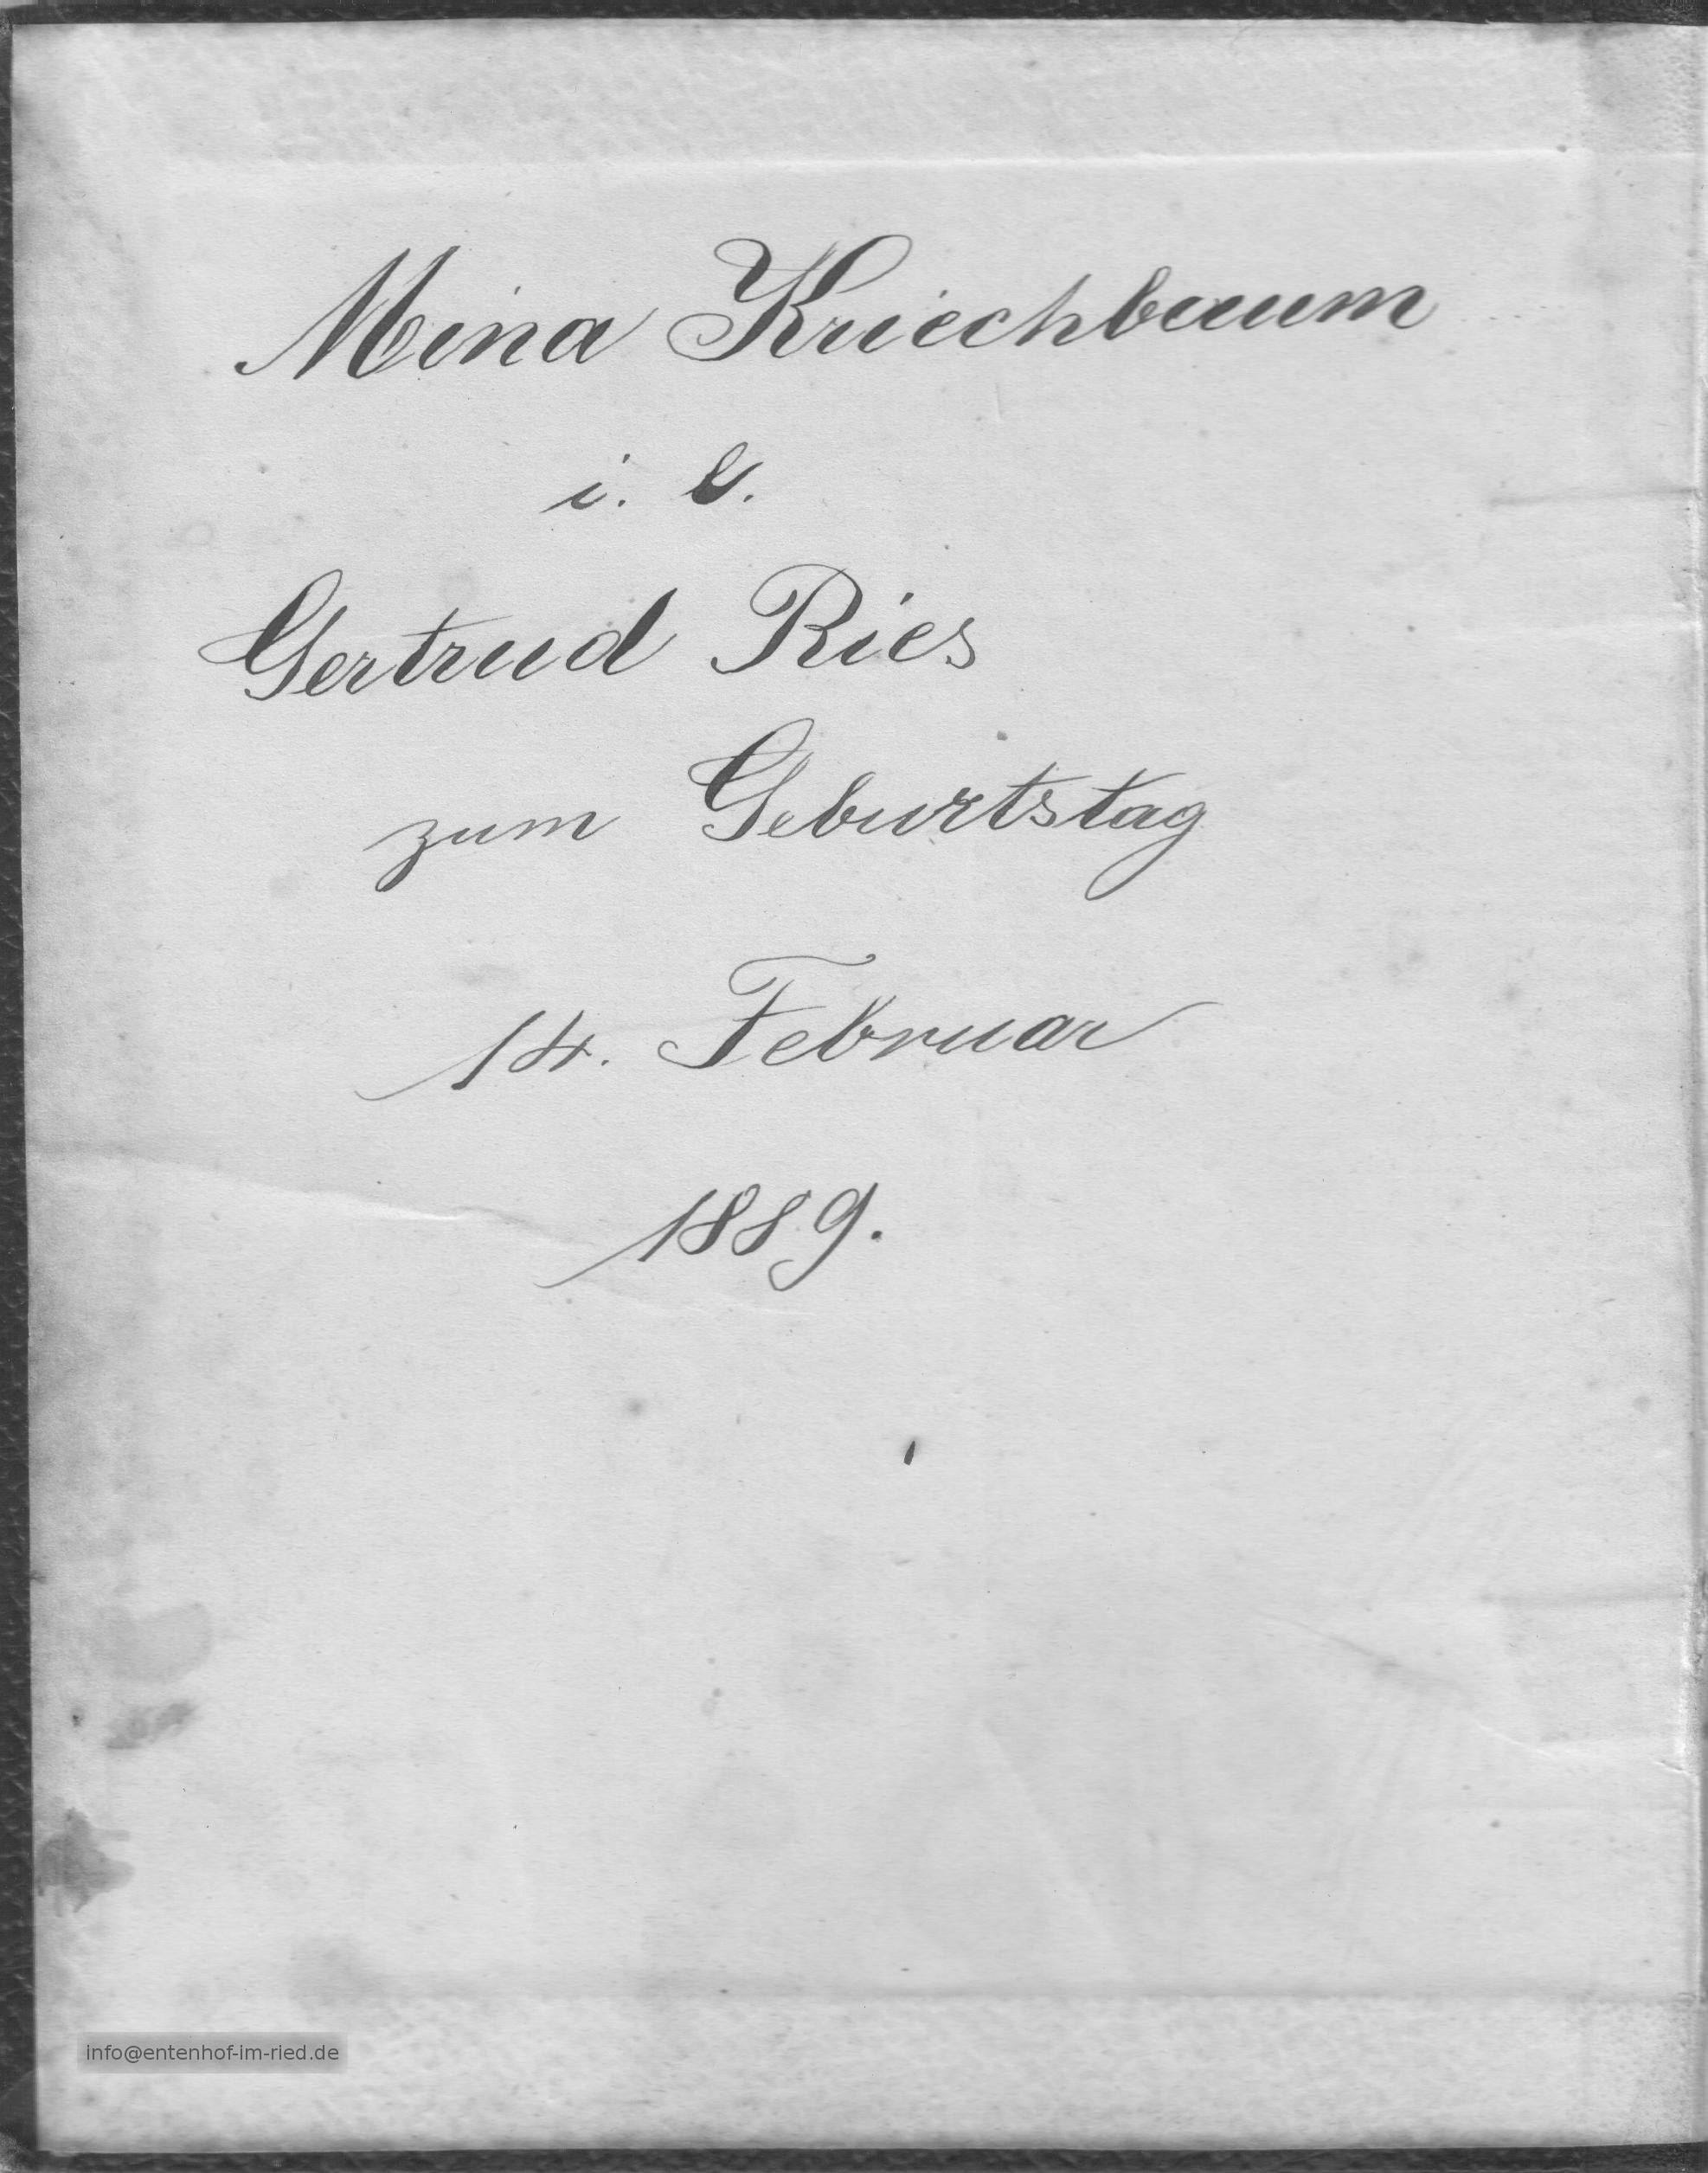 Mina Kriechbaum
i. l.
Gertrud Ries
zum Geburtstag
14. Februar
1889.
info@entenhof-im-ried.de